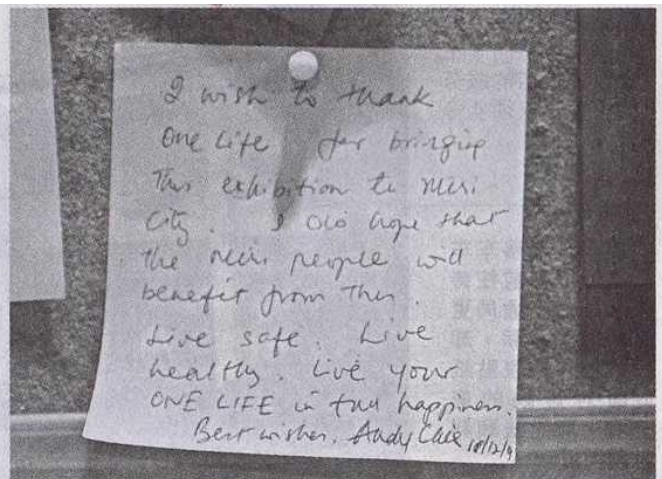 I wish to thank
One Life for bringing
This exhibition to Miri
City. I do hope that
the Miri people will
benefit from this.
Live safe. Live
healthy. Live your
ONE LIFE in full happiness.
Best wishes, Andy